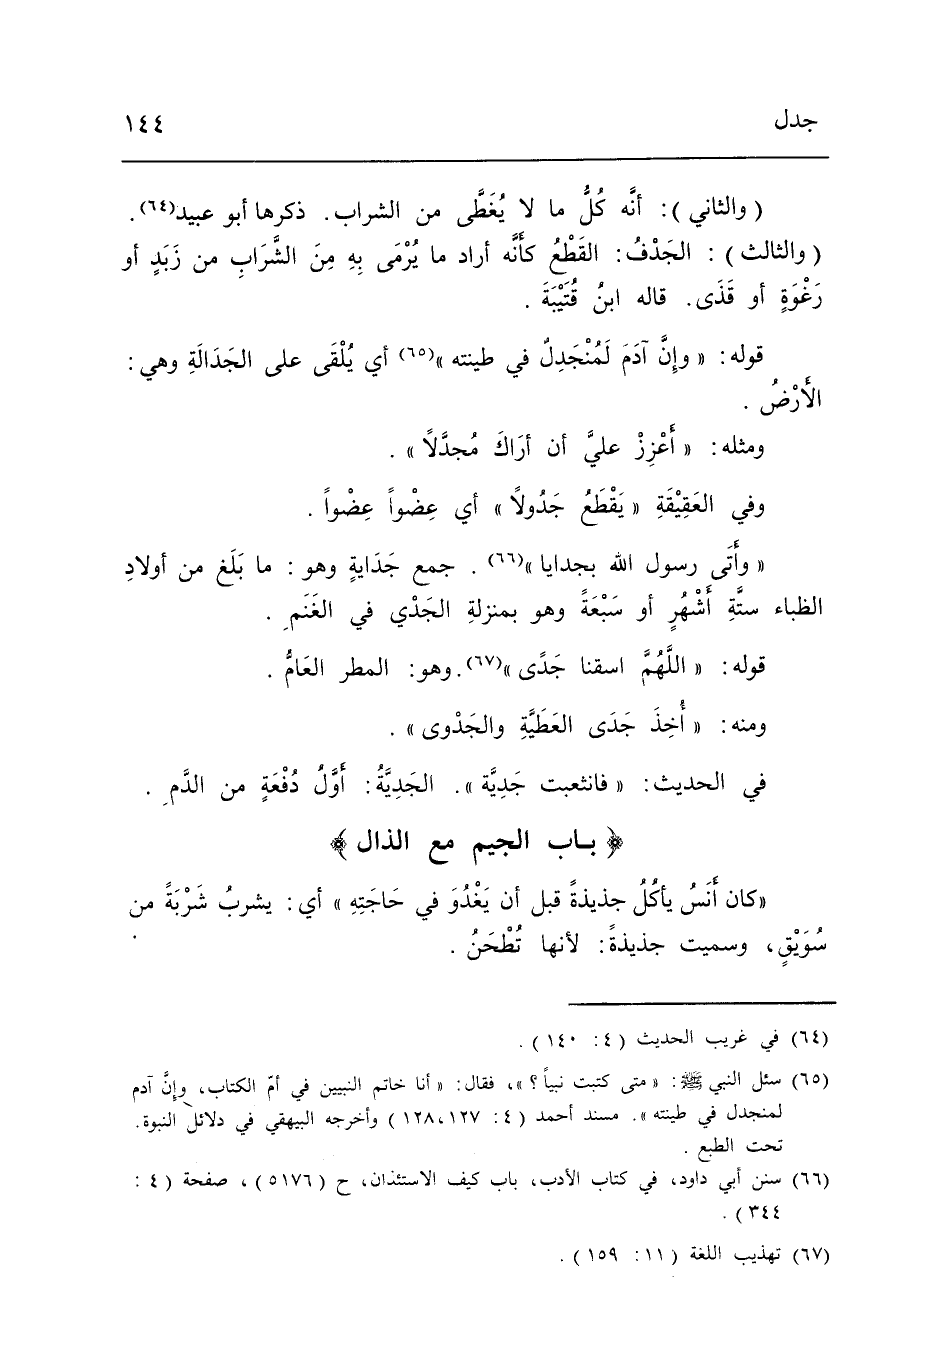 جدل ١٤٤
( والثاني ): أنَّه كُلُّ ما لا يُغَطَّى من الشراب. ذكرها أبو عبيد(٦٤).
( والثالث ) : الجَدْفُ: القَطْعُ كأنَّه أراد ما يُرْمَى بِهِ مِنَ الشَّرَابِ من زَبَدٍ أو
رَغْوَةٍ أو قَذَى. قاله ابنُ قُتَيْبَةَ .
قوله: « وإنَّ آدَمَ لَمُنْجَدِلٌ في طينته »(٦٥) أي يُلْقَى على الجَدَالَةِ وهي:
الأَرْضُ .
ومثله: « أَعْزِزْ عليَّ أن أرَاكَ مُجدَّلاً » .
وفي العَقِيْقَةِ « يَقْطَعُ جَدُولاً » أي عِضْواً عِضْواً .
« وأَتَى رسول الله بجدايا »(٦٦) . جمع جَدَايةٍ وهو : ما بَلَغ من أولادِ
الظباء ستَّةِ أَشْهُرٍ أو سَبْعَةً وهو بمنزلةِ الجَدْي في الغَنَمِ .
قوله: « اللَّهُمَّ اسقنا جَدًى »(٦٧).وهو: المطر العَامُّ .
ومنه: « أُخِذَ جَدَى العَطَيَّةِ والجَدْوى » .
في الحديث: « فانثعبت جَدِيَّة ». الجَدِيَّةُ: أَوَّلُ دُفْعَةٍ من الدَّمِ .
﴿ بـاب الجيم مع الذال ﴾
«كان أَنَسُ يأكُلُ جذيذةً قبل أن يَغْدُوَ في حَاجَتِهِ » أي: يشربُ شَرْبَةً من
سُوَيْقٍ، وسميت جذيذةً: لأنها تُطْحَنُ .
(٦٤) في غريب الحديث ( ٤: ١٤٠ ) .
(٦٥) سئل النبي ﷺ: « متى كتبت نبياً ؟ »، فقال: « أنا خاتم النبيين في أمّ الكتاب، وإنَّ آدم
لمنجدل في طينته ». مسند أحمد ( ٤: ١٢٧، ١٢٨ ) وأخرجه البيهقي في دلائل النبوة.
تحت الطبع .
(٦٦) سنن أبي داود، في كتاب الأدب، باب كيف الاستئذان، ح ( ٥١٧٦ ) ، صفحة ( ٤ :
٣٤٤ ) .
(٦٧) تهذيب اللغة ( ١١: ١٥٩ ) .